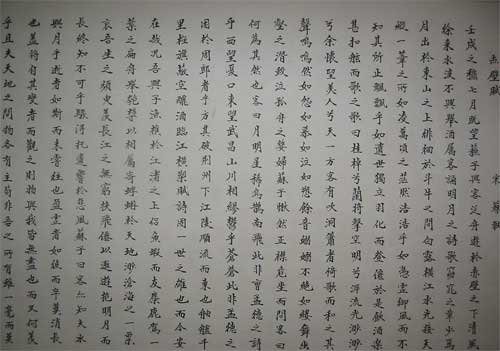 赤壁賦 宋 蘇軾
壬戌之秋七月既望蘇子與客泛舟遊於赤壁之下清風
徐來水波不興舉酒屬客誦明月之詩歌窈窕之章少焉
月出於東山之上徘徊於斗牛之間白露橫江水光接天
縱一葦之所如凌萬頃之茫然浩浩乎如馮虛御風而不
知其所止飄飄乎如遺世獨立羽化而登僊於是飲酒樂
甚扣舷而歌之歌曰桂棹兮蘭槳擊空明兮泝流光渺渺
兮余懷望美人兮天一方客有吹洞簫者倚歌而和之其
聲嗚嗚然如怨如慕如泣如愬餘音嫋嫋不絕如縷舞幽
壑之潛蛟泣孤舟之嫠婦蘇子愀然正襟危坐而問客曰
何為其然也客曰月明星稀烏鵲南飛此非曹孟德之詩
乎西望夏口東望武昌山川相繆鬱乎蒼蒼此非孟德之
困於周郎者乎方其破荊州下江陵順流而東也舳艫千
里旌旗蔽空釃酒臨江橫槊賦詩固一世之雄也而今安
在哉況吾與子漁樵於江渚之上侶魚蝦而友麋鹿駕一
葉之扁舟舉匏樽以相屬寄蜉蝣於天地渺滄海之一粟
哀吾生之須臾羨長江之無窮挾飛僊以遨遊抱明月而
長終知不可乎驟得托遺響於悲風蘇子曰客亦知夫水
與月乎逝者如斯而未嘗往也盈虛者如彼而卒莫消長
也蓋將自其變者而觀之則物與我皆無盡也而又何羨
乎且夫天地之間物各有主苟非吾之所有雖一毫而莫